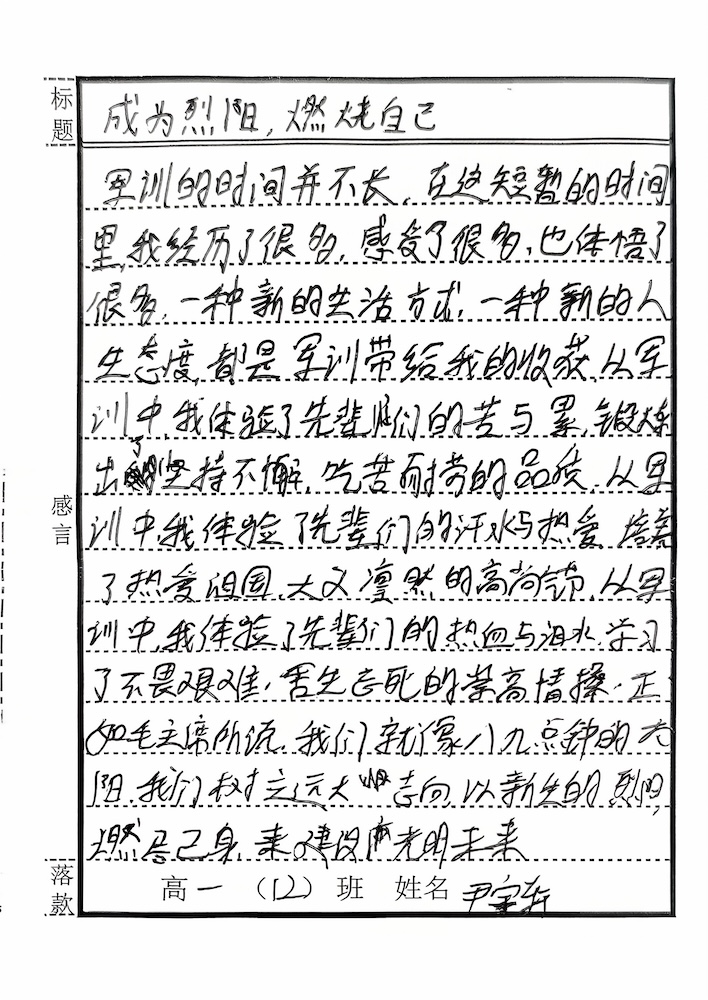 标题
成为烈阳，燃烧自己
军训的时间并不长，在这短暂的时间
里，我经历了很多，感受了很多，也体悟了
很多，一种新的生活方式，一种新的人
生态度，都是军训带给我的收获，从军
训中，我体验了先辈们的苦与累，锻炼
出了坚持不懈，吃苦耐劳的品质，从军
感言
训中，我体验了先辈们的汗水与热爱，培养
了热爱祖国，大义凛然的高尚气节，从军
训中，我体验了先辈们的热血与泪水，学习
了不畏艰难，舍生忘死的崇高情操，正
如毛主席所说，我们就像八九点钟的太
阳，我们树立远大志向，以新生的烈阳，
燃己身，来建设光明未来
落款
高一（12）班 姓名 尹宇轩